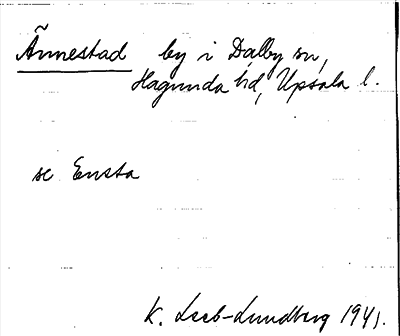 Ånnestad by i Dalby sn,
Hagunda hd, Upsala l.
se Ensta
K. Leeb-Lundberg 1941.